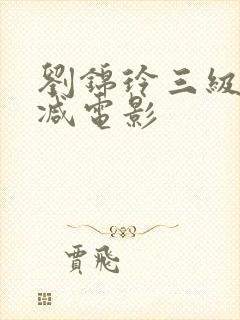 劉錦玲三級
减電影
賈飛